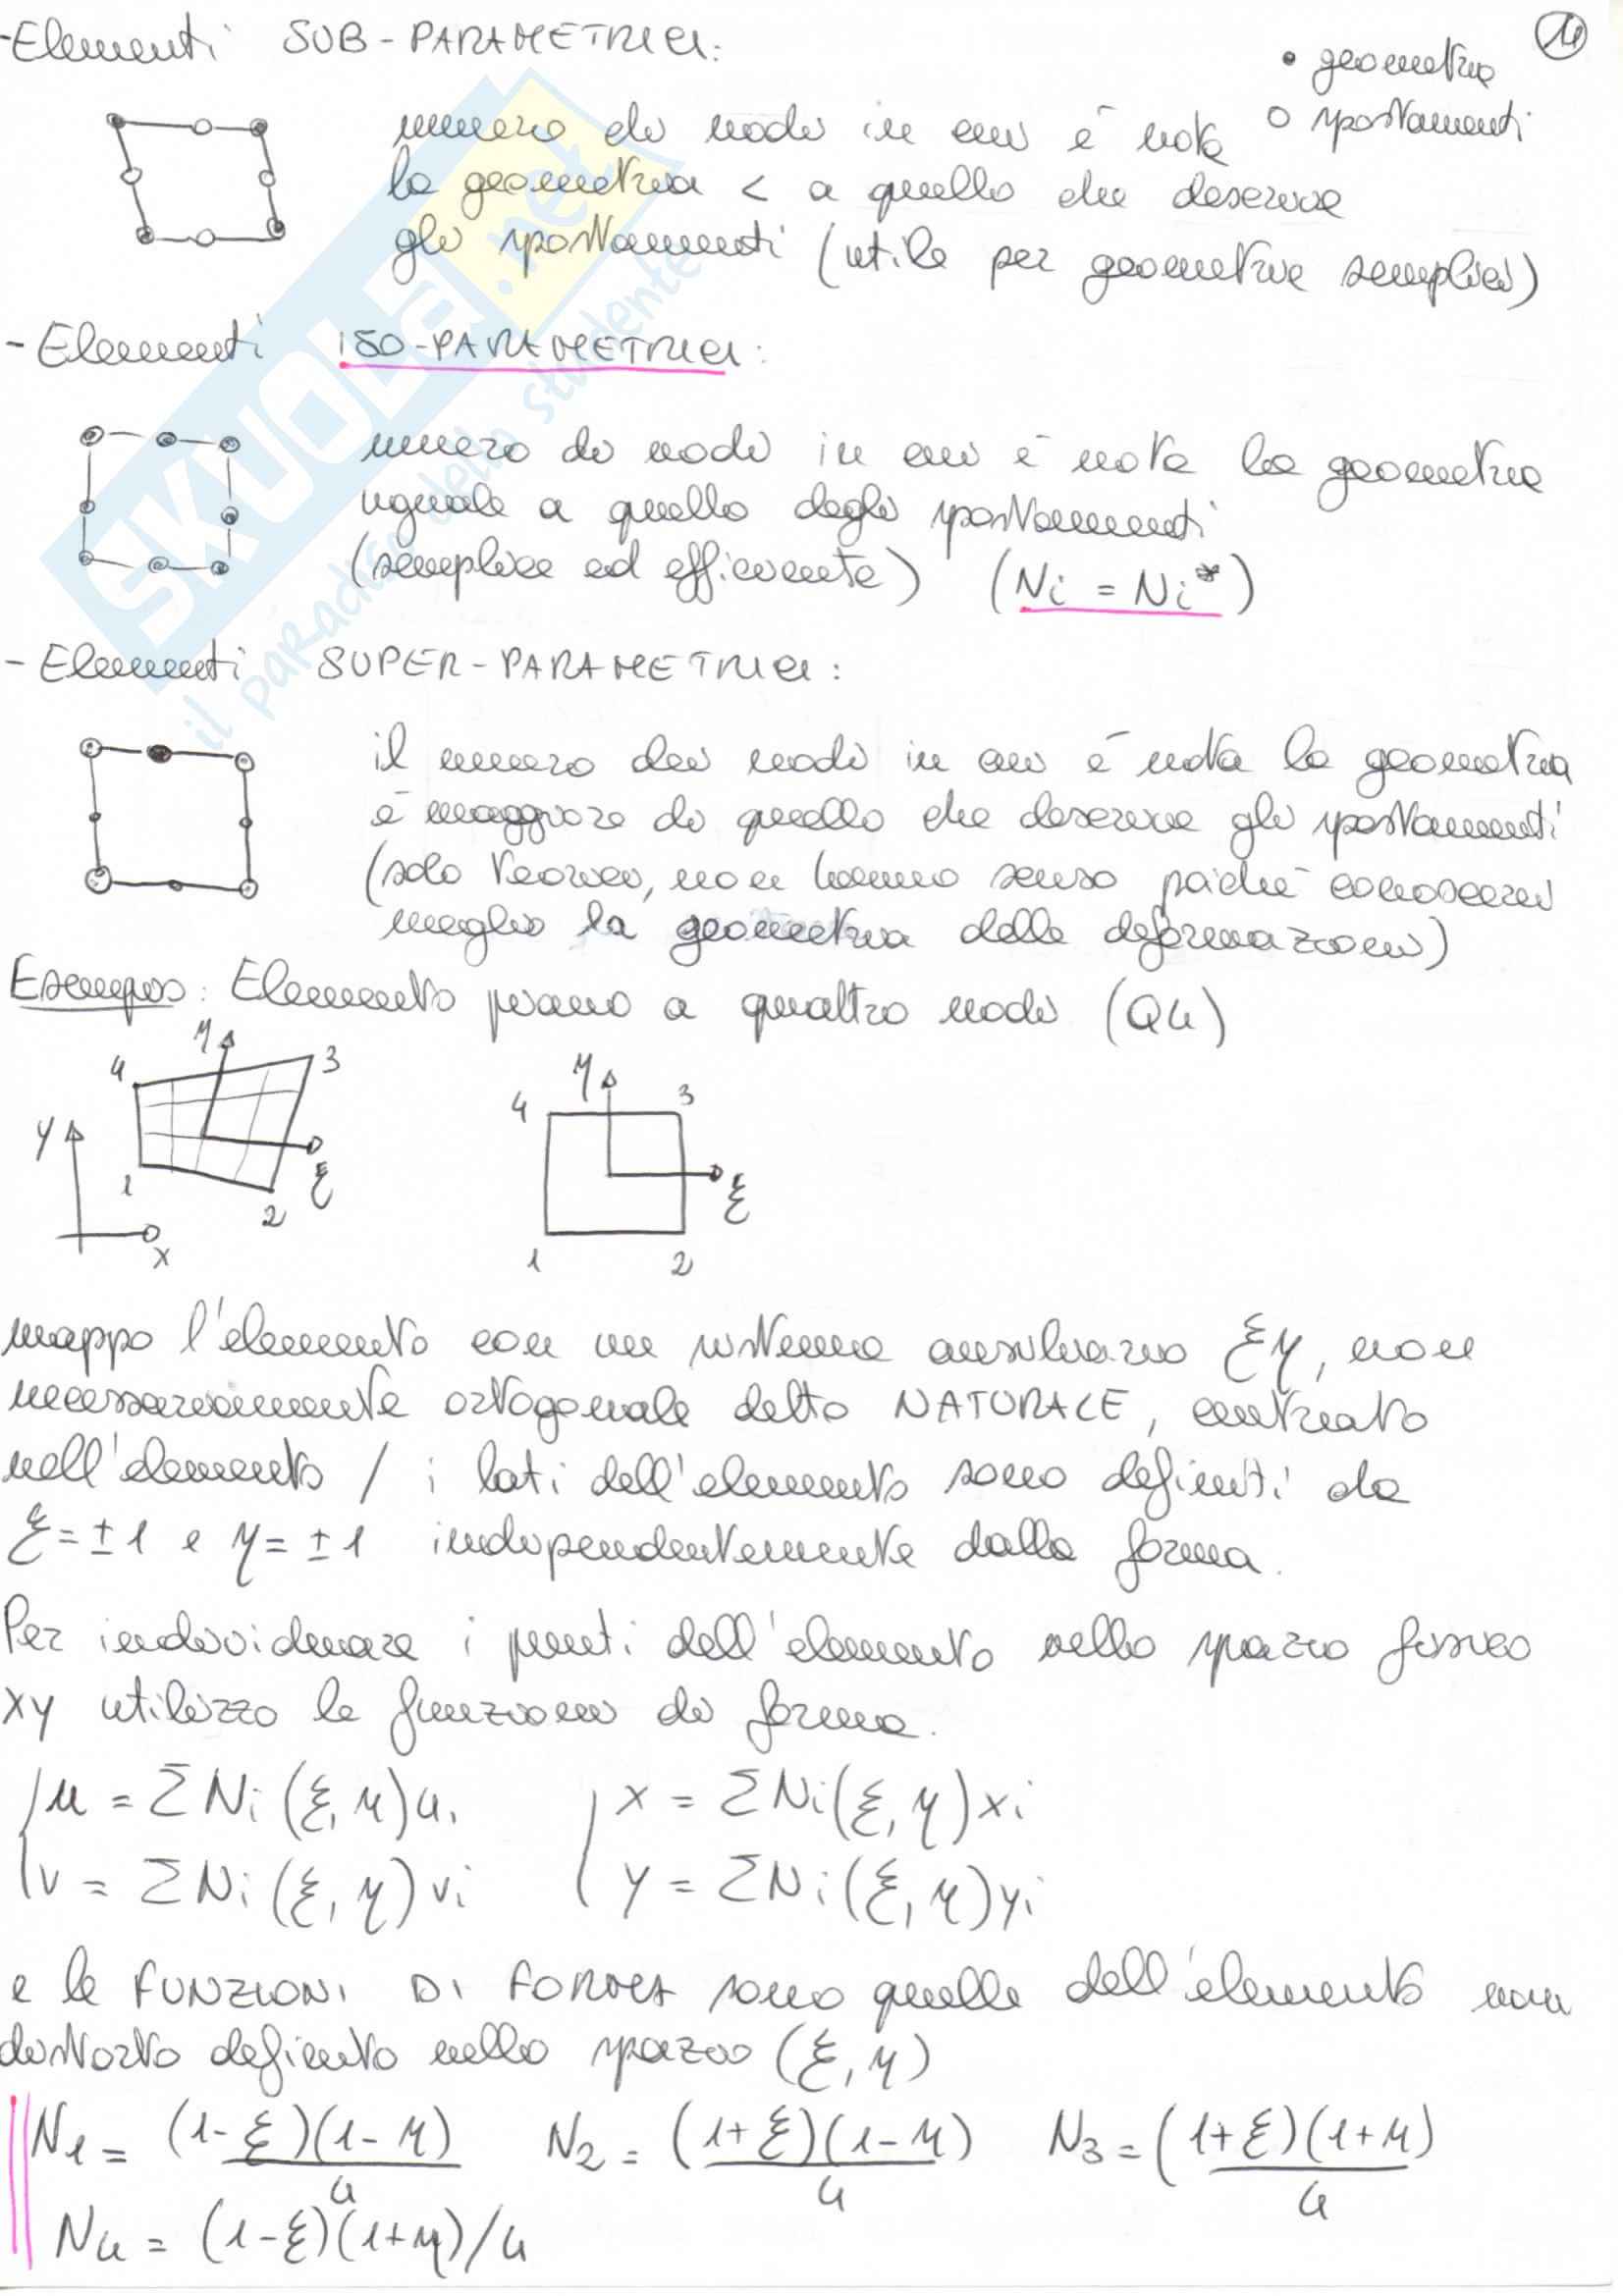 -Elementi SUB-PARAMETRICI:
14
• geometria
o spostamenti
numero di nodi in cui è nota
la geometria < a quello che descrive
gli spostamenti (utile per geometrie semplici)
- Elementi ISO-PARAMETRICI:
numero di nodi in cui è nota la geometria
uguale a quello degli spostamenti
(semplice ed efficiente) (Ni = Ni*)
- Elementi SUPER-PARAMETRICI:
il numero dei nodi in cui è nota la geometria
è maggiore di quello che descrive gli spostamenti
(solo teorici, non hanno senso poiché conoscerei
meglio la geometria delle deformazioni)
Esempio: Elemento piano a quattro nodi (Q4)
4 η 3
y
1 2 ξ
x
4 η 3
ξ
1 2
mappo l'elemento con un sistema ausiliario ξη, non
necessariamente ortogonale detto NATURALE, centrato
nell'elemento / i lati dell'elemento sono definiti da
ξ=±1 e η=±1 indipendentemente dalla forma.
Per individuare i punti dell'elemento nello spazio fisico
xy utilizzo le funzioni di forma.
u = ΣNi(ξ,η)ui x = ΣNi(ξ,η)xi
v = ΣNi(ξ,η)vi y = ΣNi(ξ,η)yi
e le FUNZIONI DI FORMA sono quelle dell'elemento non
distorto definito nello spazio (ξ,η)
N1 = (1-ξ)(1-η)/4 N2 = (1+ξ)(1-η)/4 N3 = (1+ξ)(1+η)/4
N4 = (1-ξ)(1+η)/4
SKUOLA.net
il paradiso dello studente